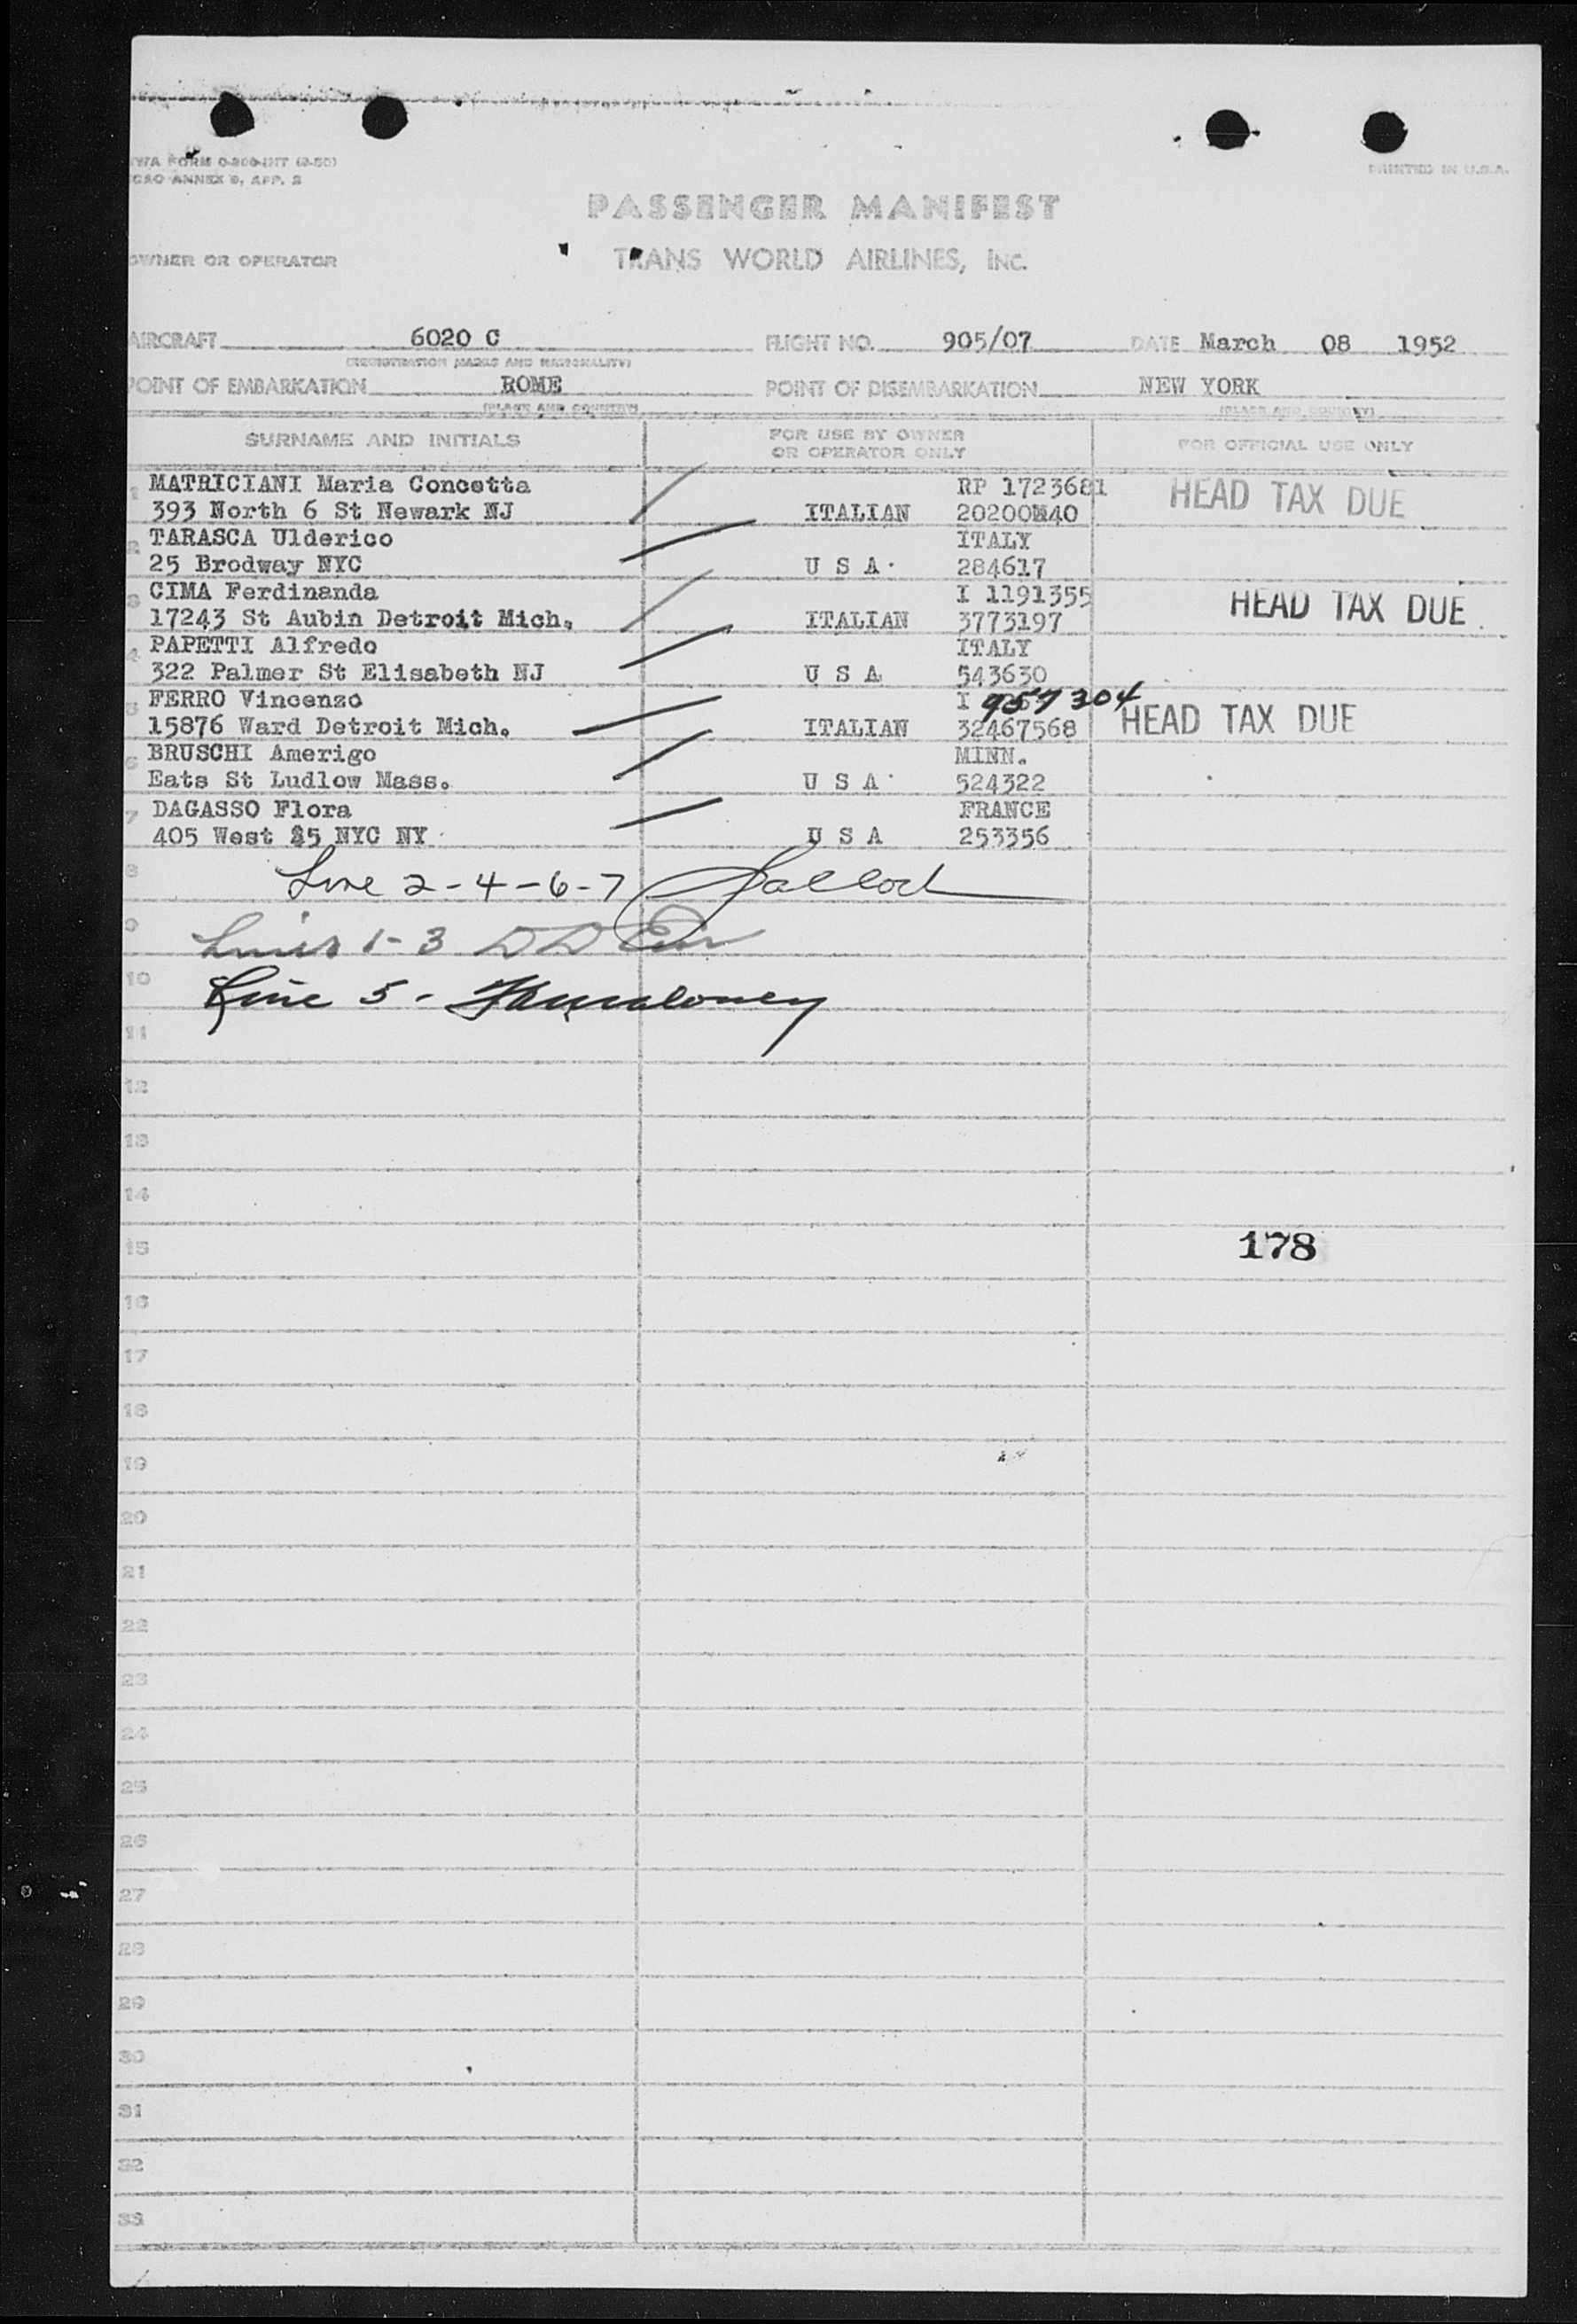 TWA FORM O-200-INT (2-50)
ICAO ANNEX 9, APP. 2
PRINTED IN U.S.A.
PASSENGER MANIFEST
OWNER OR OPERATOR TRANS WORLD AIRLINES, INC.
AIRCRAFT 6020 C FLIGHT NO. 905/07 DATE March 08 1952
(REGISTRATION MARKS AND NATIONALITY)
POINT OF EMBARKATION ROME POINT OF DISEMBARKATION NEW YORK
(PLACE AND COUNTRY) (PLACE AND COUNTRY)
SURNAME AND INITIALS FOR USE BY OWNER OR OPERATOR ONLY FOR OFFICIAL USE ONLY
1 MATRICIANI Maria Concetta RP 1723681 HEAD TAX DUE
393 North 6 St Newark NJ ITALIAN 20200M40
2 TARASCA Ulderico ITALY
25 Brodway NYC U S A 284617
3 CIMA Ferdinanda I 1191355 HEAD TAX DUE
17243 St Aubin Detroit Mich. ITALIAN 3773197
4 PAPETTI Alfredo ITALY
322 Palmer St Elisabeth NJ U S A 543630
5 FERRO Vincenzo I 957304
15876 Ward Detroit Mich. ITALIAN 32467568 HEAD TAX DUE
6 BRUSCHI Amerigo MINN.
Eats St Ludlow Mass. U S A 524322
7 DAGASSO Flora FRANCE
405 West 25 NYC NY U S A 253356
8 Line 2-4-6-7
9 Lines 1-3
10 Line 5 -
11
12
13
14
15 178
16
17
18
19
20
21
22
23
24
25
26
27
28
29
30
31
32
33